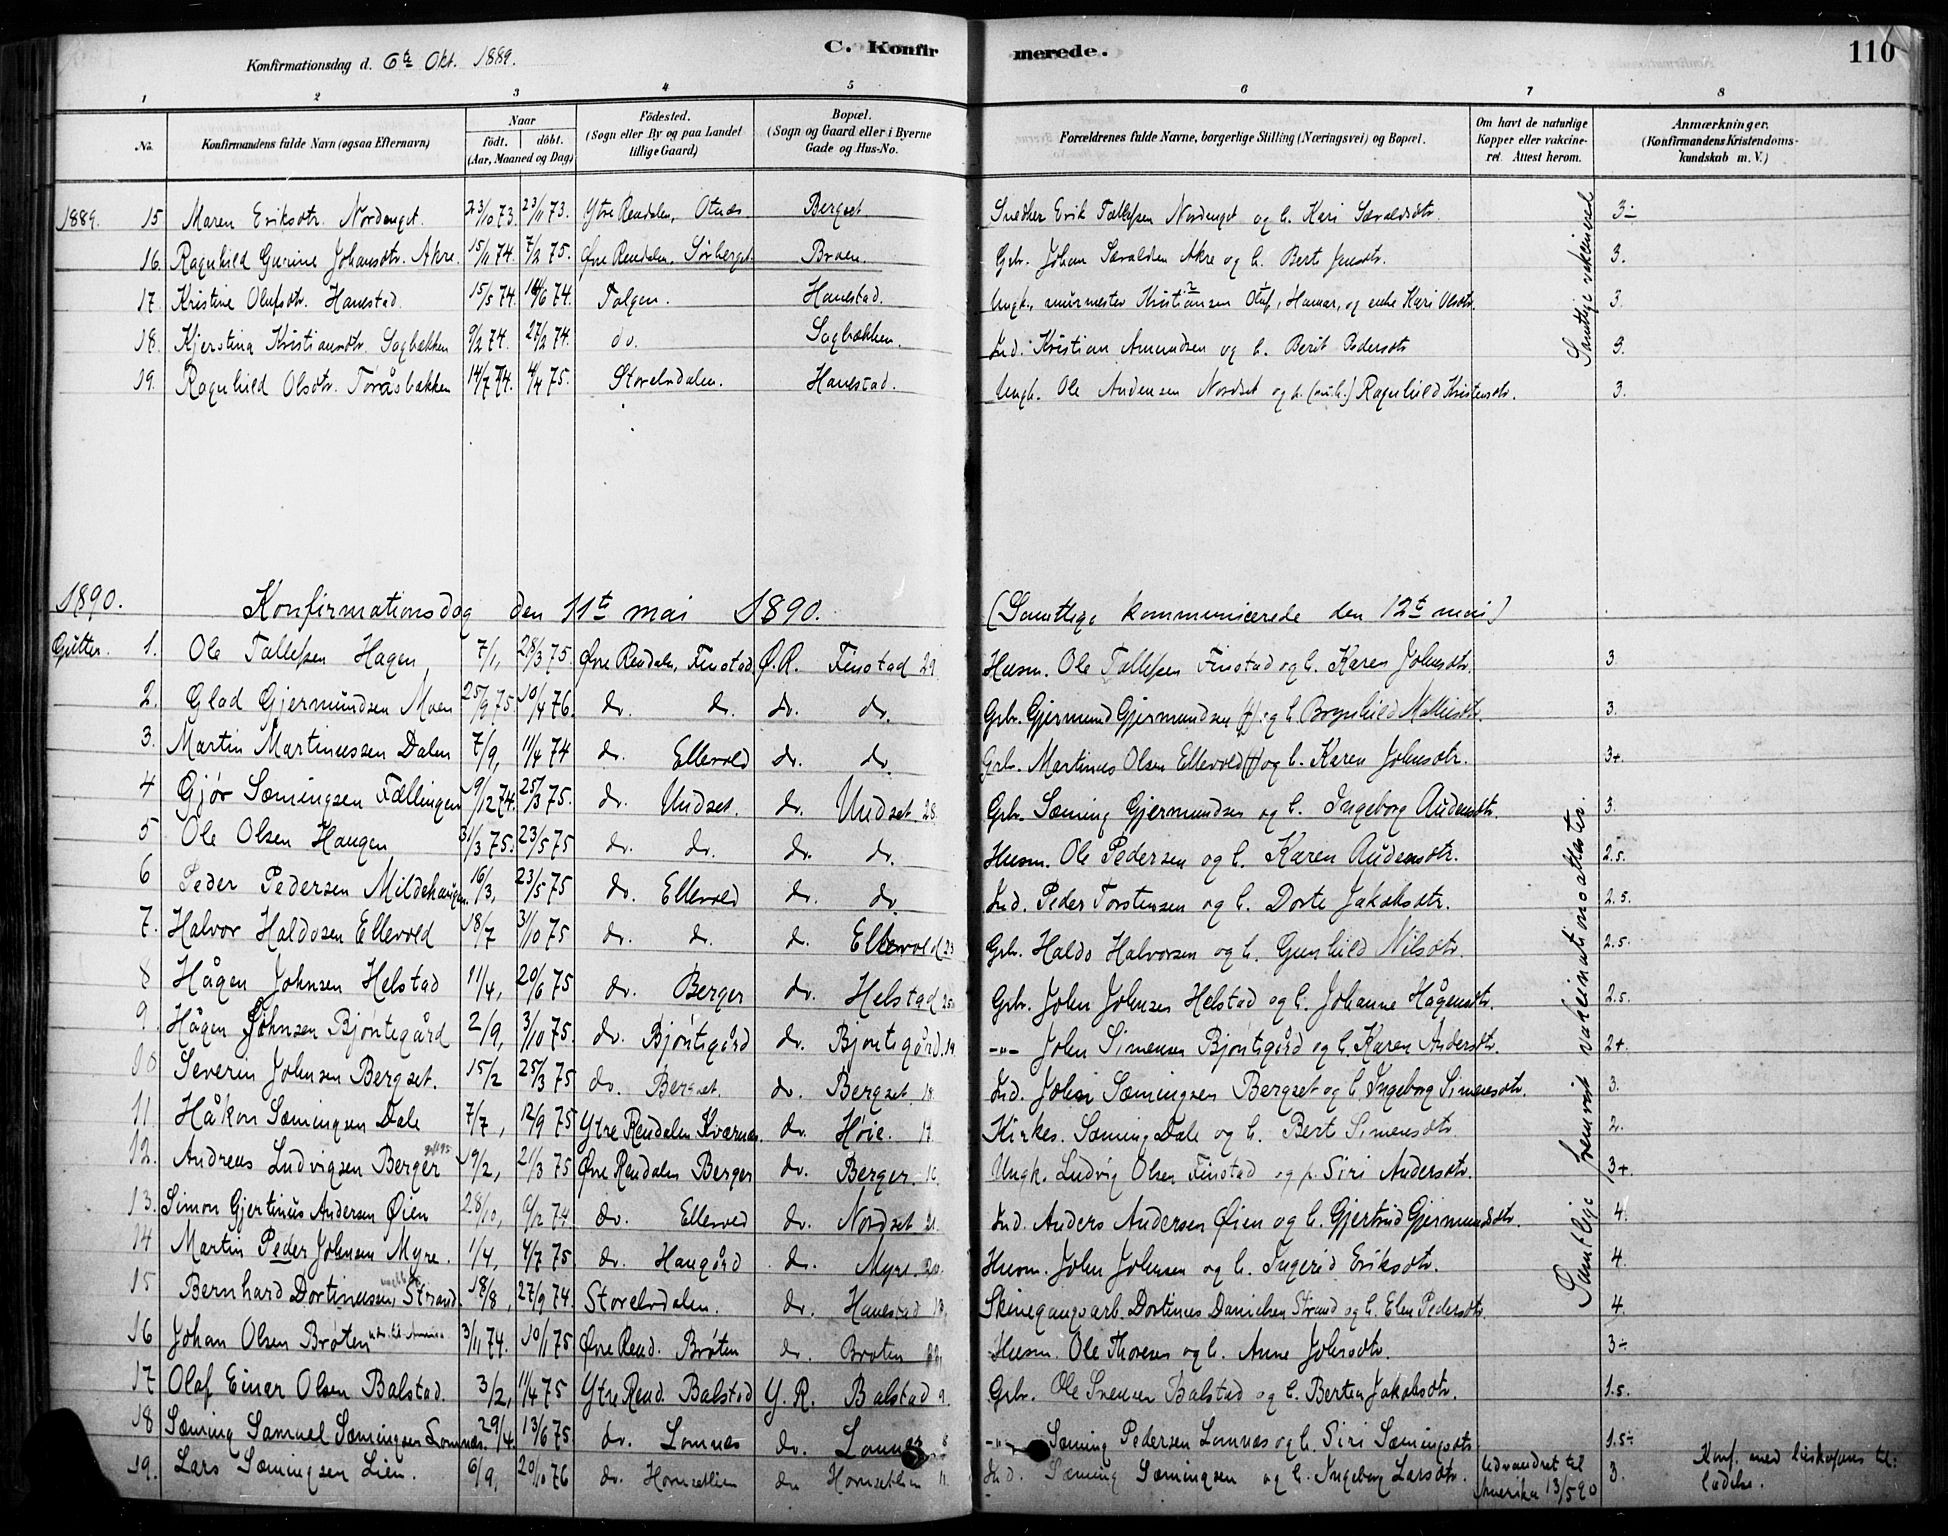 Konfirmationsdag d. 6te Okt. 1889.
C. Konfirmerede.
110
1 2 3 4 5 6 7 8
No.
Konfirmandens fulde Navn (ogsaa Efternavn)
Naar født. døbt. (Aar, Maaned og Dag)
Fødested. (Sogn eller By og paa Landet tillige Gaard)
Bopæl. (Sogn og Gaard eller i Byerne Gade og Hus-No.
Forældrenes fulde Navne, borgerlige Stilling (Næringsvei) og Bopæl.
Om havt de naturlige Kopper eller vakcineret. Attest herom.
Anmærkninger. (Konfirmandens Kristendomskundskab m. V.)
1889. 15 Maren Eriksdtr. Nordenget. 23/10 73. 23/11 73. Ytre Rendalen, Otnes Bergset Snedker Erik Tallefsen Nordenget og h. Kari Sævaldsdtr. 3-
16. Ragnhild Gurine Johansdtr. Akre. 15/11 74. 7/2 75. Øvre Rendalen, Sørberget Broen. Gbr. Johan Sævaldsen Akre og h. Berit Jensdtr. 3.
17. Kristine Olufsdtr. Hanestad. 15/5 74. 14/6 74. Tolgen. Hanestad. Ungk., murmester Kristiansen Oluf, Hamar, og enke Kari Olsdtr. 3.
18. Kjerstina Kristiansdtr. Sagbækken 9/2 74. 27/2 74. do. Sagbækken. Ind. Kristian Amundsen og h. Berit Pedersdtr 3.
19. Ragnhild Olsdtr. Toråsbækken 14/7 74. 4/4 75. Storelvdalen. Hanestad. Ungk. Ole Andersen Nordset og p. Ragnhild Kristensdtr. 3.
Samtlige vakcinered
1890. Konfirmationsdag den 11te mai 1890. (Samtlige kommunicerede den 12te mai)
Gutter. 1. Ole Tallefsen Hagen, 7/1, 28/3 75. Øvre Rendalen, Finstad. Ø.R. Finstad 29. Husm. Ole Tallefsen Finstad og h. Karen Johnsdtr. 3
2. Glad Gjermundsen Moen 25/9 75. 10/4 76. dr. dr. dr. dr. Gbr. Gjermund Gjermundsen (†) og h. Brynhild Mattisdtr. 3.
3. Martin Martinussen Dalen 7/9, 11/4 74 dr. Ellevold dr. dr. Gbr. Martinus Olsen Ellevold (†) og h. Karen Johnsdtr. 3+
4 Gjør Sæmingsen Fællingen 9/12 74. 25/3 75. dr. Undset. dr. Undset 28. Gbr. Sæming Gjermundsen og h. Ingeborg Audensdtr. 3.
5 Ole Olsen Haugen 31/3 75. 23/5 75 dr. dr. dr. dr. Husm. Ole Pedersen og h. Karen Audensdtr. 2.5.
6 Peder Pedersen Mildehaugen. 16/3, 23/5 75 dr. Ellevold dr. dr. Ind. Peder Torstensen og h. Dorte Jakobsdtr. 2.5.
7. Halvor Haldosen Ellevold 18/7 3/10 75 dr. dr. dr. Ellevold 23 Gbr. Haldo Halvorsen og h. Gunhild Nilsdtr. 2.5.
8 Hågen Johnsen Helstad 11/4, 20/6 75 dr. Berger dr. Helstad 25. Gbr. John Johnsen Helstad og h. Johanne Hågensdtr. 2.5.
9. Hågen Johnsen Bjøntegård 2/9, 3/10 75. dr. Bjøntegård dr. Bjøntegård. 19 -"- John Simensen Bjøntegård og h. Karen Andersdtr. 2+.
10 Severin Johnsen Bergset. 15/2 25/3 75 dr. Bergset. dr. Bergset 18. Ind. John Sæmingsen Bergset og h. Ingeborg Simensdtr. 3.
11 Håkon Sæmingsen Dale 7/7, 12/9 75 Ytre Rendalen Kværnes. dr. Høie. 17. Kirkes. Sæming Dale og h. Berit Simensdtr 2.
12. Andreas Ludvigsen Berger 19/2, 21/3 75 Øvre Rendalen Berger dr. Berger. 16. Ungk. Ludvig Olsen Finstad og p. Siri Andersdtr. 3+
13. Simon Gjertinus Andersen Øien 28/10, 9/2 74 dr. Ellevold dr. Nordset 21. Ind. Anders Andersen Øien og h. Gjertrud Gjermundsdtr. 4.
14 Martin Peder Johnsen Myre. 1/4, 4/7 75. dr. Haugård dr. Myre. 20. Husm. John Johnsen og h. Ingerid Eriksdtr. 4.
15 Bernhard Dortinussen Strand. 18/8, 27/9 74. Storelvdalen. dr. Hanestad 13. Skinegangsarb. Dortinus Danielsen Strand og h. Elen Pedersdtr. 4.
16 Johan Olsen Brøten 3/11 74. 10/1 75 Øvre Rend. Brøten dr. Brøten Husm. Ole Thoresen og h. Anne Johnsdtr. 3-
17 Olaf Einar Olsen Balstad. 3/2, 11/4 75 Ytre Rend. Balstad Y. R. Balstad 9. Gbr. Ole Svensen Balstad og h. Berten Jakobsdtr. 1.5.
18 Sæming Samuel Sæmingsen Lomnæs. 29/4. 13/6 75 dr. Lomnæs dr. Lomnæs 8 -"- Sæming Pedersen Lomnæs og h. Siri Sæmingsdtr 1.5-
19. Lars Sæmingsen Lien. 6/9, 20/10 76 dr. Hornsetlien dr. Hornsetlien 11. Ind. Sæming Sæmingsen og h. Ingeborg Larsdtr. Udvandret til Amerika 13/5 90 3. Konf. med biskopens tilladelse.
Samtlige fremvist vakcinationsattester.